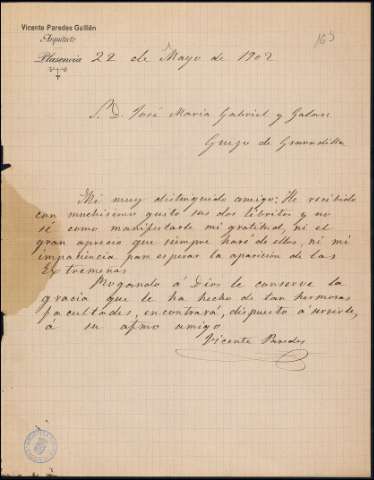 Vicente Paredes Guillén
Arquitecto
Plasencia
165
22 de Mayo de 1902
S. D. José Maria Gabriel y Galan
Guijo de Granadilla
Mi muy distinguido amigo: He recibido
con muchisimo gusto sus dos libritos y no
sé como manifestarle mi gratitud, ni el
gran aprecio que siempre haré de ellos, ni mi
impaciencia para esperar la aparición de las
Extremeñas
Rogando á Dios le conserve la
gracia que le ha hecho de tan hermosas
facultades, encontrará, dispuesto á servirle,
á su afmo amigo
Vicente Paredes